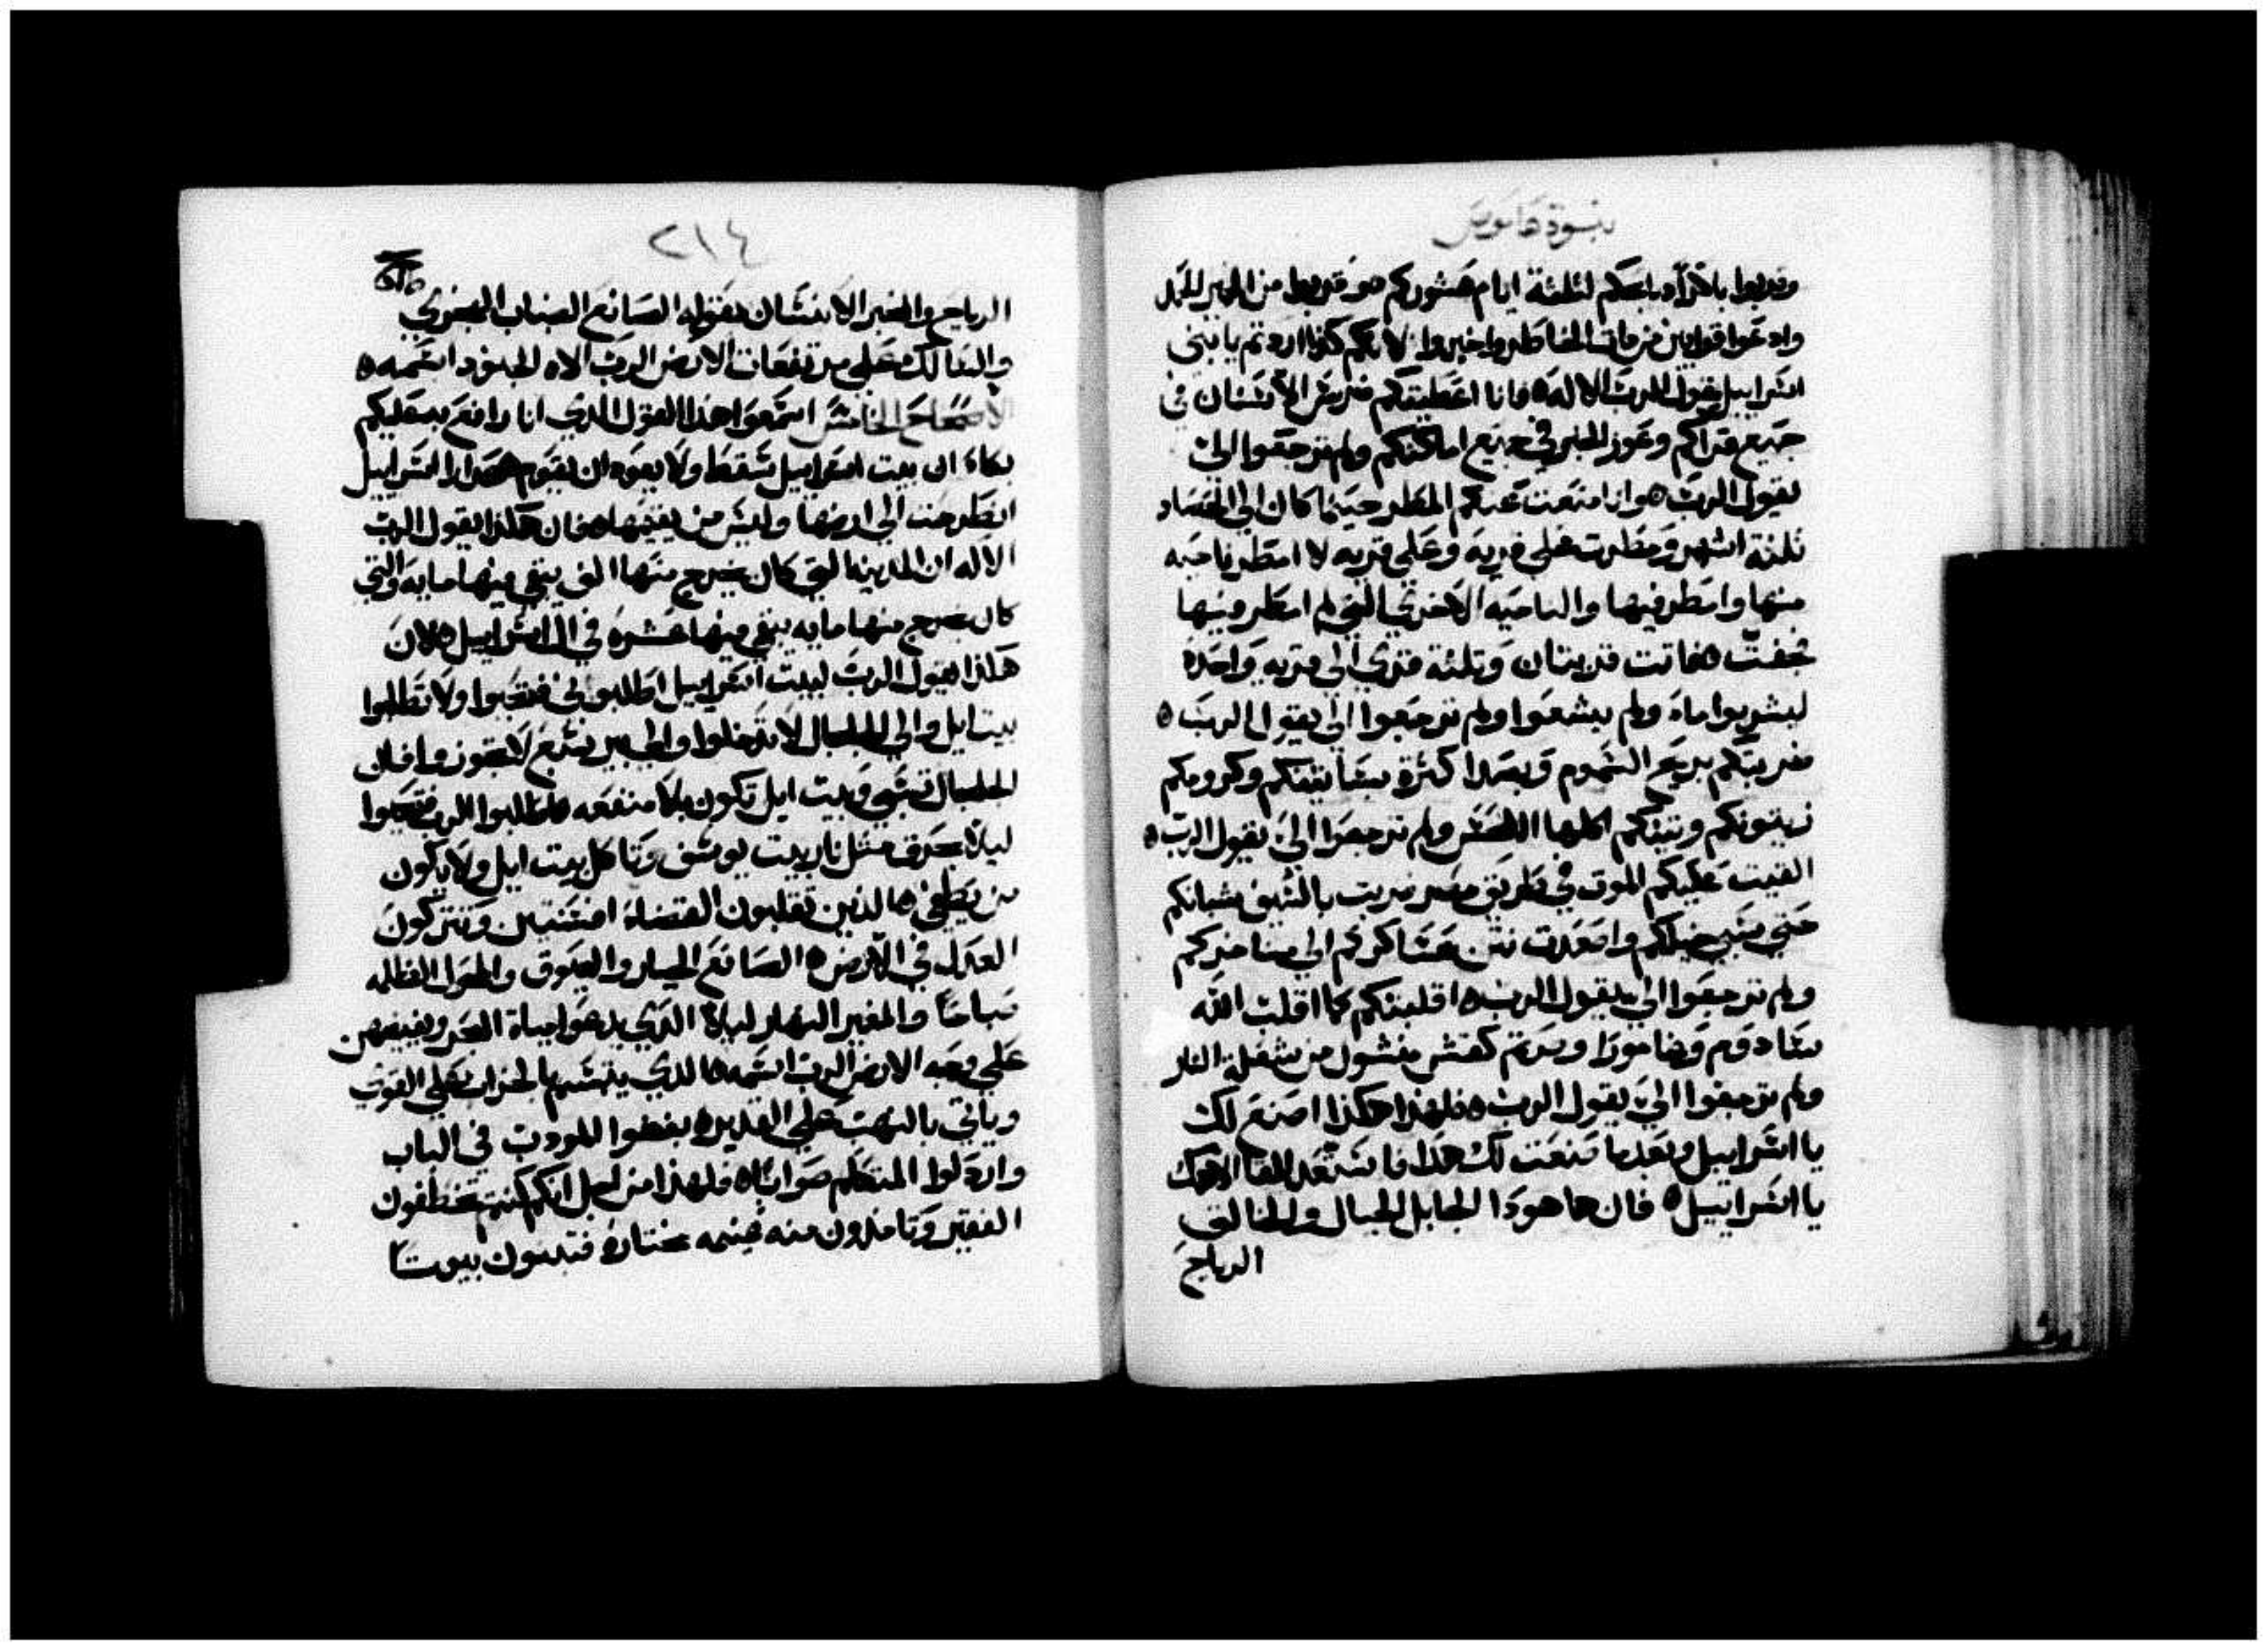 نبوة هاموص
وقدموا باكراً دبايحكم لثلثة ايام عشوركم هو قربوا من الخمير للحمد
وادعوا قرابين مرضات الخاطر واخبروا لانكم كذا اردتم يا بني
اسراييل يقول الرب الاله ه فانا اعطيتكم ضرس الاسنان في
جميع قراكم وعوز الخبز في جميع اماكنكم ولم ترجعوا اليّ
يقول الرب ه وانا منعت عنكم المطر حينما كان الي الحصاد
ثلثة اشهر ومطرت علي قريه وعلي قريه لا امطر ناحيه
منها وامطر فيها والناحيه الاخري التي لم امطر فيها
جفت ه فاتت قريتان وثلثة قري الي قريه واحده
ليشربوا ماء ولم يشبعوا ولم ترجعوا الي يقول الرب ه
ضربتكم بريح السموم وبصدا كثرة بساتينكم وكرومكم
زيتونكم وتينكم اكلها القمص ولم ترجعوا اليّ يقول الرب ه
القيت عليكم الموت في طريق مصر ضربت بالسيف شبانكم
حتي سبي خيلكم واصعدت نتن عساكركم الي مناخركم
ولم ترجعوا الي يقول الرب ه اقلبتكم كما اقلب الله
سادوم وغامورا وصرتم كقش منشول من شعلة النار
ولم ترجعوا اليّ يقول الرب ه فلهذا هكذا اصنع لك
يا اسراييل وبعدما صنعت لك هذا فاستعد للقا الاهك
يا اسراييل ه فان ها هوذا الجابل الجبال والخالق
الرياح
٢١٤
الرياح والمخبر الانسان بقوله الصانع الضباب الصبحوي
والسالك علي مرتفعات الارض الرب الاه الجنود اسمه ه
الاصحاح الخامس اسمعوا هذا القول الذي انا رافع بسقليكم
بكاء ان بيت اسراييل سقط ولا يعود ان يقوم عدرا اسراييل
انطرحت الي ارضها وليس من يقيمها ه فان هكذا يقول الرب
الاله ان المدينه التي كان يخرج منها الف يبقي فيها مايه والتي
كان يخرج منها مايه يبقي فيها عشره في ال اسراييل ه لان
هكذا يقول الرب لبيت اسراييل اطلبوني فتحيوا ولا تطلبوا
بيت ايل والي الجلجال لا تدخلوا والي بير سبع لا تجوزوا فان
الجلجال تسبي وبيت ايل تكون بلا منفعه ه اطلبوا الرب فتحيوا
ليلا تحرق مثل نار بيت يوسف وتاكل بيت ايل ولا يكون
من يطفي ه الذين تقلبون القضاء افسنتين وتتركون
العدل في الارض ه الصانع الجبار والعيوق والمحول الظلمه
صباحاً والمغير النهار ليلاً الذي يدعو مياة البحر ويفيضهن
علي وجه الارض الرب اسمه ه الذي يتبسم بالخراب علي القوي
وياتي بالنهب علي القدير ه بغضوا المودب في الباب
وارذلوا المتكلم صواباً ه فلهذا من اجل انكم كنتم تخطفون
الفقير وتاخذون منه غنيمه مختاره فتبنون بيوتاً